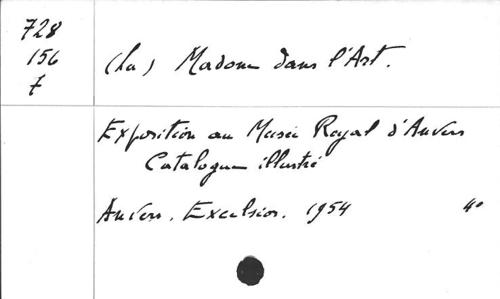 728
156
7
(La) Madone dans l'Art.
Exposition au Musée Royal d'Anvers
Catalogue illustré
Anvers. Excelsior. 1954 4°